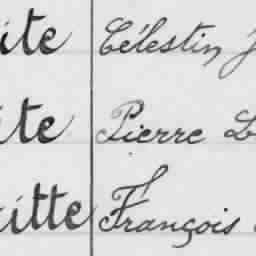 ite Célestin J
ite Pierre L
itte François